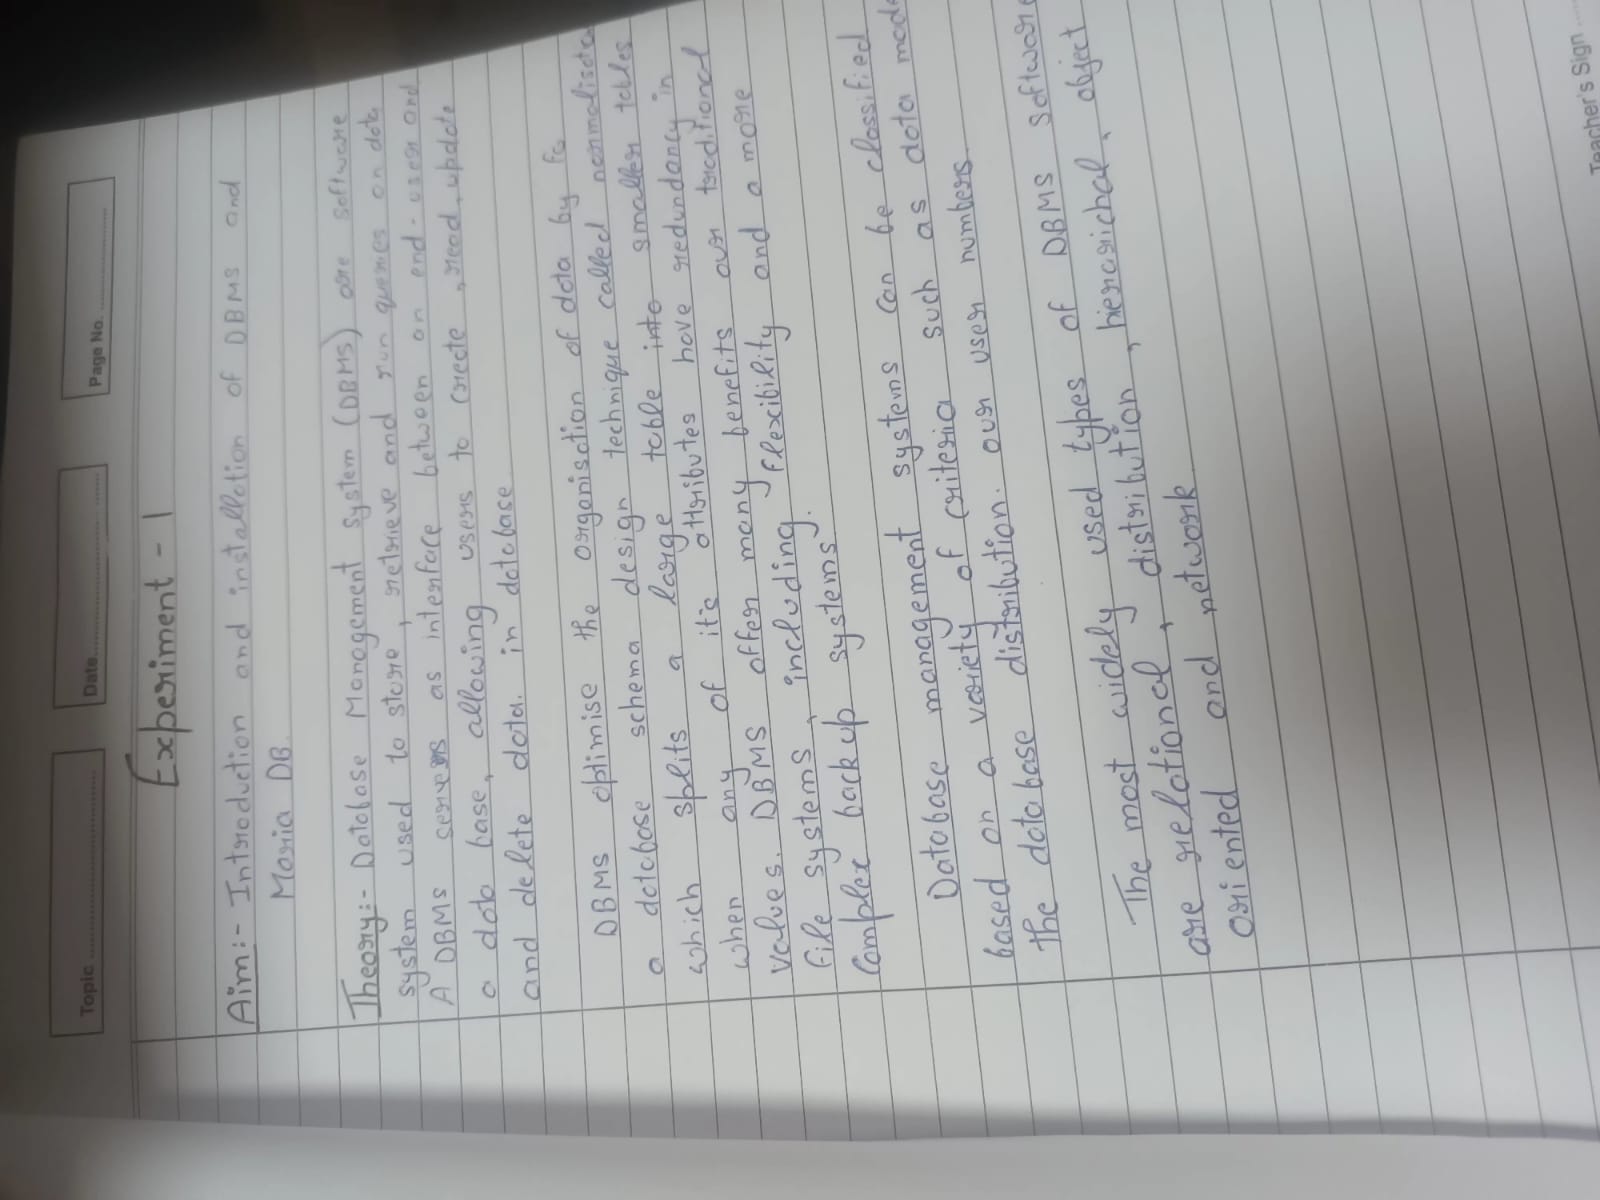 Topic
Date
Page No.
Experiment - 1
Aim:- Introduction and installation of DBMS and
Maria DB
Theory:- Database Management system (DBMS) are software
system used to store, retrieve and run queries on data
A DBMS servers as interface between an end-user and
a data base, allowing users to create, read, update
and delete data. in database
DBMS optimise the organisation of data by
a database schema design technique called
which splits a large table into smaller tables
when any of it's attributes have redundancy in
values. DBMS offer many benefits our traditional
file systems, including flexibility and a more
complex backup systems
Database management systems can be classified
based on a variety of criteria such as data
the database distribution. our user numbers.
The most widely used types of DBMS software
are relational, distribution, hierarichal, object
oriented and network
Teacher's Sign